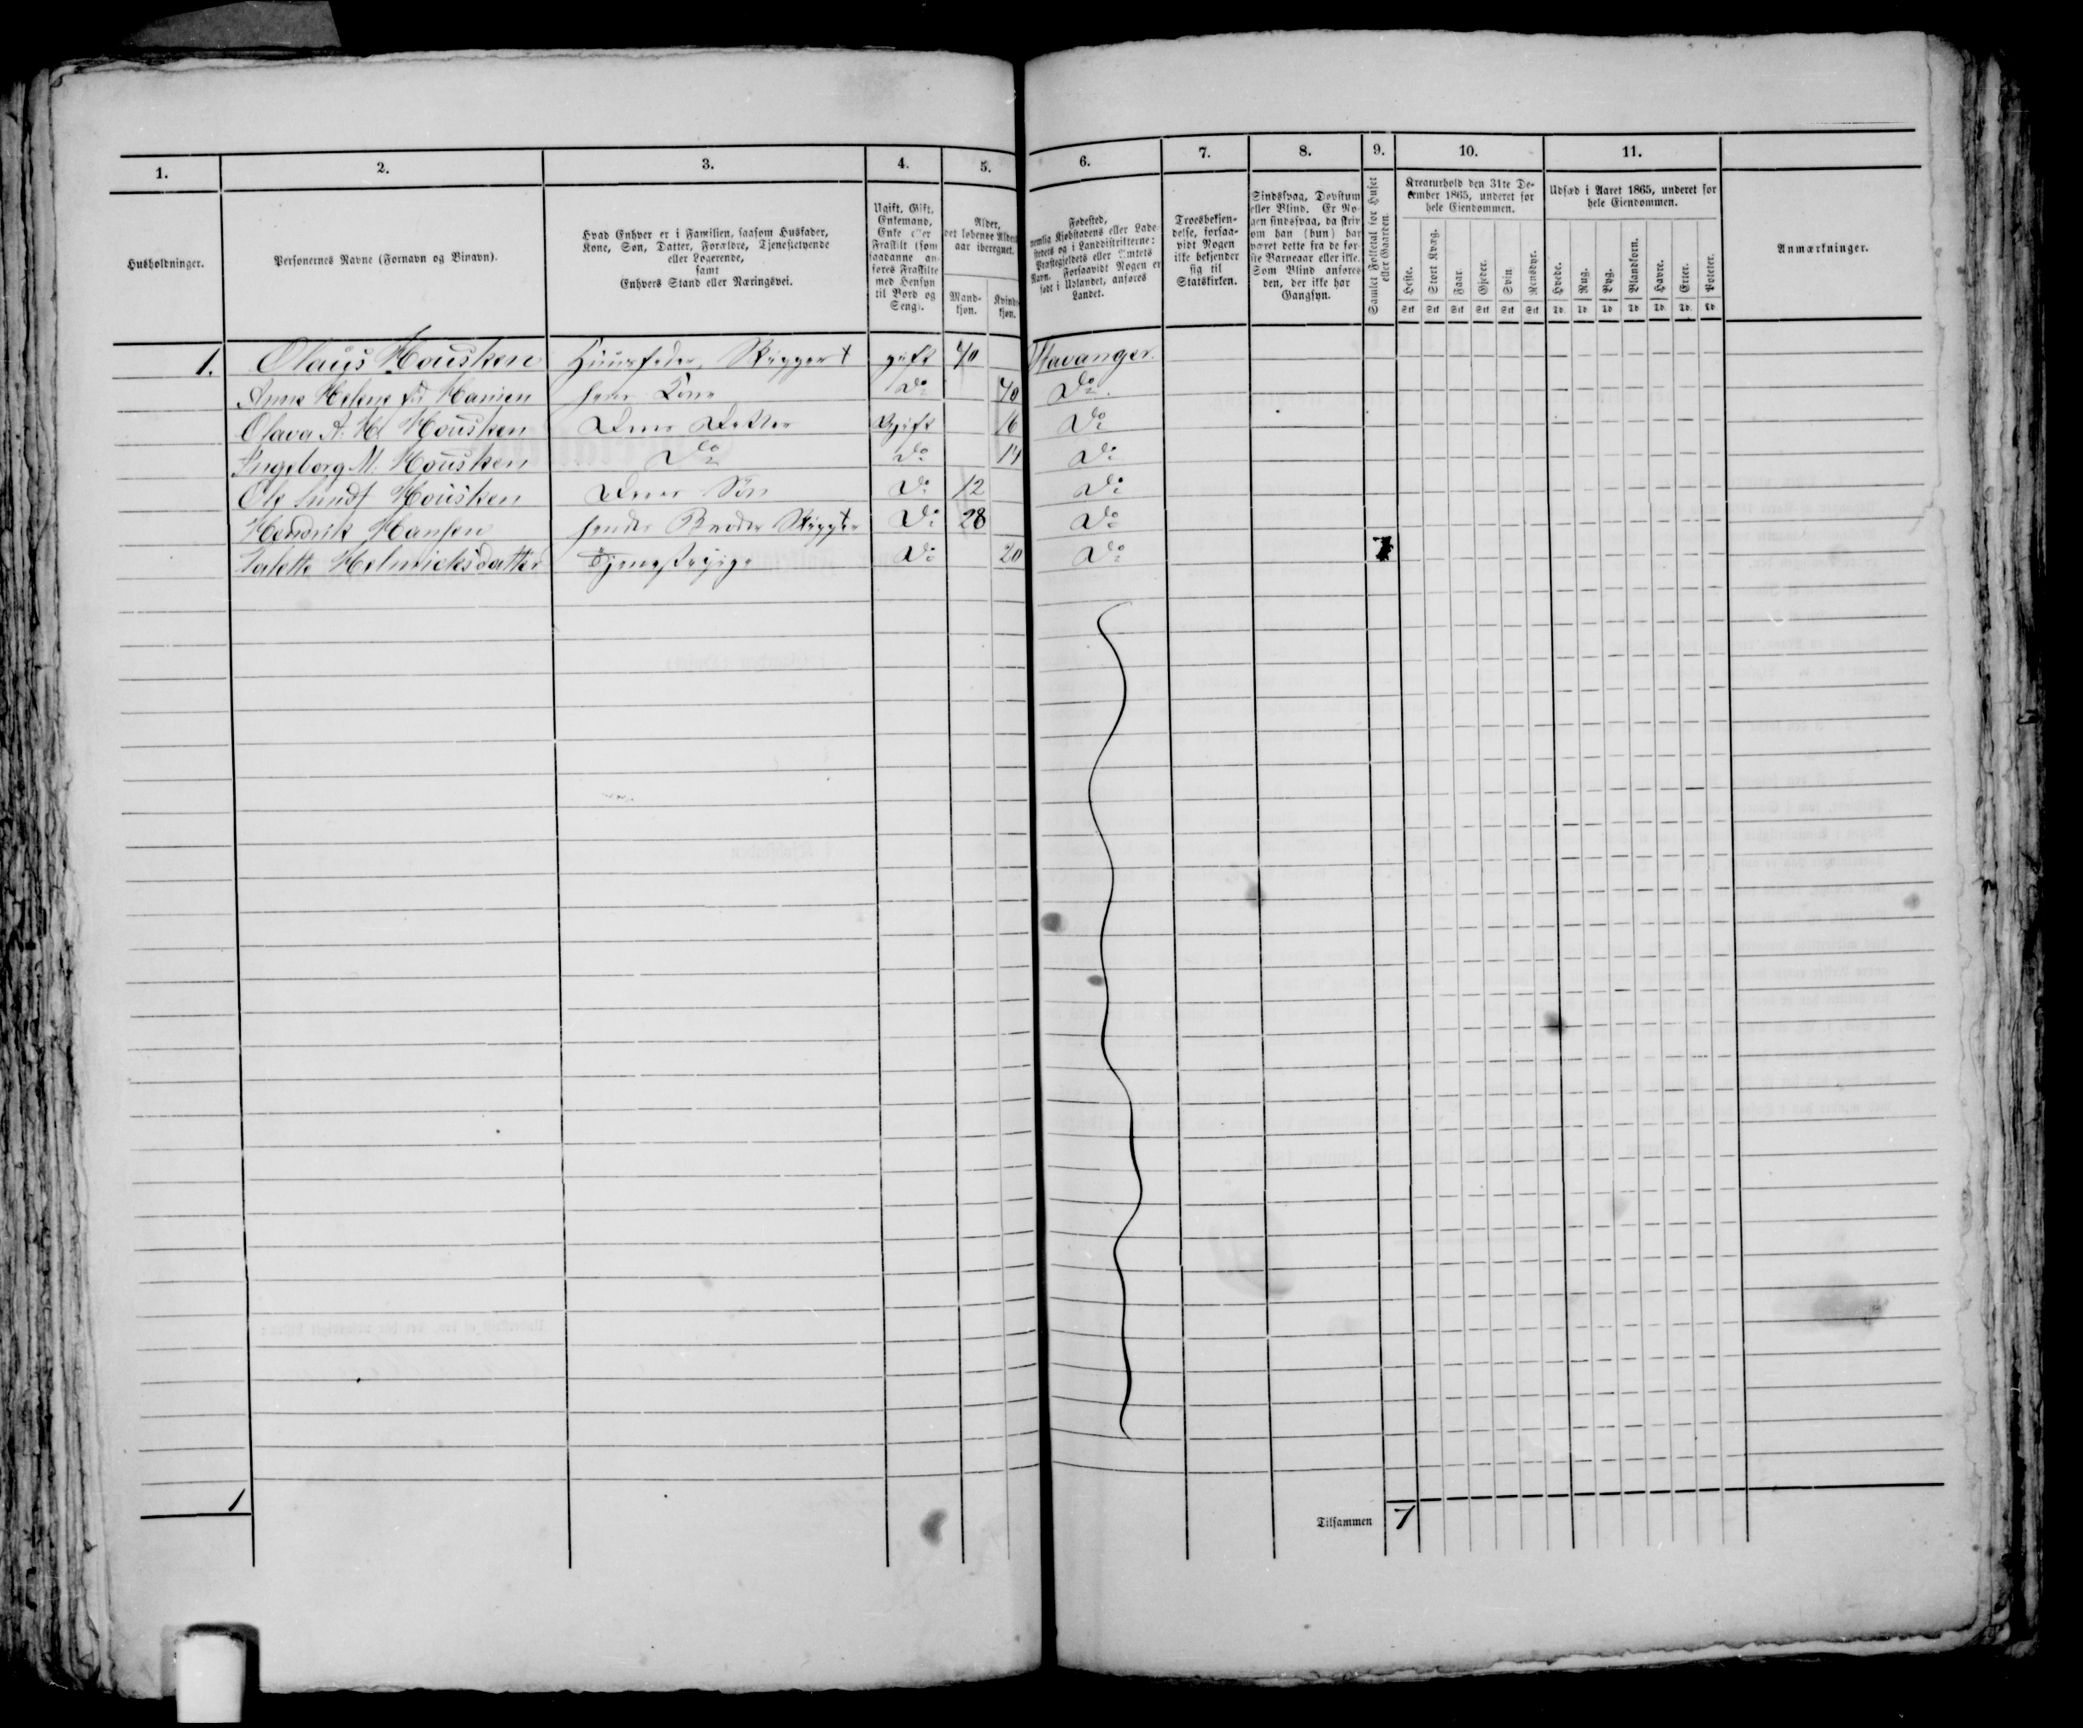 1. 2. 3. 4. 5. 6. 7. 8. 9. 10. 11.
Husholdninger.
Personernes Navne (Fornavn og Binavn).
Hvad Enhver er i Familien, saasom Husfader,
Kone, Søn, Datter, Forældre, Tjenestetyende
eller Logerende,
samt
Enhvers Stand eller Næringsvei.
Ugift, Gift,
Enkemand,
Enke eller
Fraskilt (som
saadanne an-
føres Fraskilte
med Hensyn
til Bord og
Seng).
Alder,
det løbende Alders-
aar iberegnet.
Mand-
kjøn.
Kvinde-
kjøn.
Fødested,
nemlig Kjøbstadens eller Lade-
stedets og i Landdistrikterne:
Præstegjeldets eller Amtets
Navn. Forsaavidt Nogen er
født i Udlandet, anføres
Landet.
Troesbekjen-
delse, forsaa-
vidt Nogen
ikke bekjender
sig til
Statskirken.
Sindssvag, Døvstum
eller Blind. Er No-
gen sindssvag, da skriv
om han (hun) har
været dette fra de før-
ste Barneaar eller ikke.
Som Blind anføres
den, der ikke har
Gangsyn.
Samlet Folketal for Huset
eller Gaarden.
Kreaturhold den 31te De-
cember 1865, underet for
hele Eiendommen.
Heste. Stort Kvæg. Faar. Gjeder. Svin. Rensdyr.
Stk Stk Stk Stk Stk Stk
Udsæd i Aaret 1865, underet for
hele Eiendommen.
Hvede. Rug. Byg. Blandkorn. Havre. Erter. Poteter.
Td. Td Td Td Td. Td. Td
Anmærkninger.
1. Olaus Housken Huusfader, Skrypper gift 40 Stavanger.
Anne Helene Hansen hans Kone Do 40 Do.
Olava Housken Deres Datter Ugift 16 Do
Ingeborg M. Housken Do Do 14 Do
Ole Housken Deres Søn Do 12 Do
Hendrik Hansen hendes Broder Do 28 Do
Helmicksdatter Tjenestepige Do 20 Do 7
1 Tilsammen 7